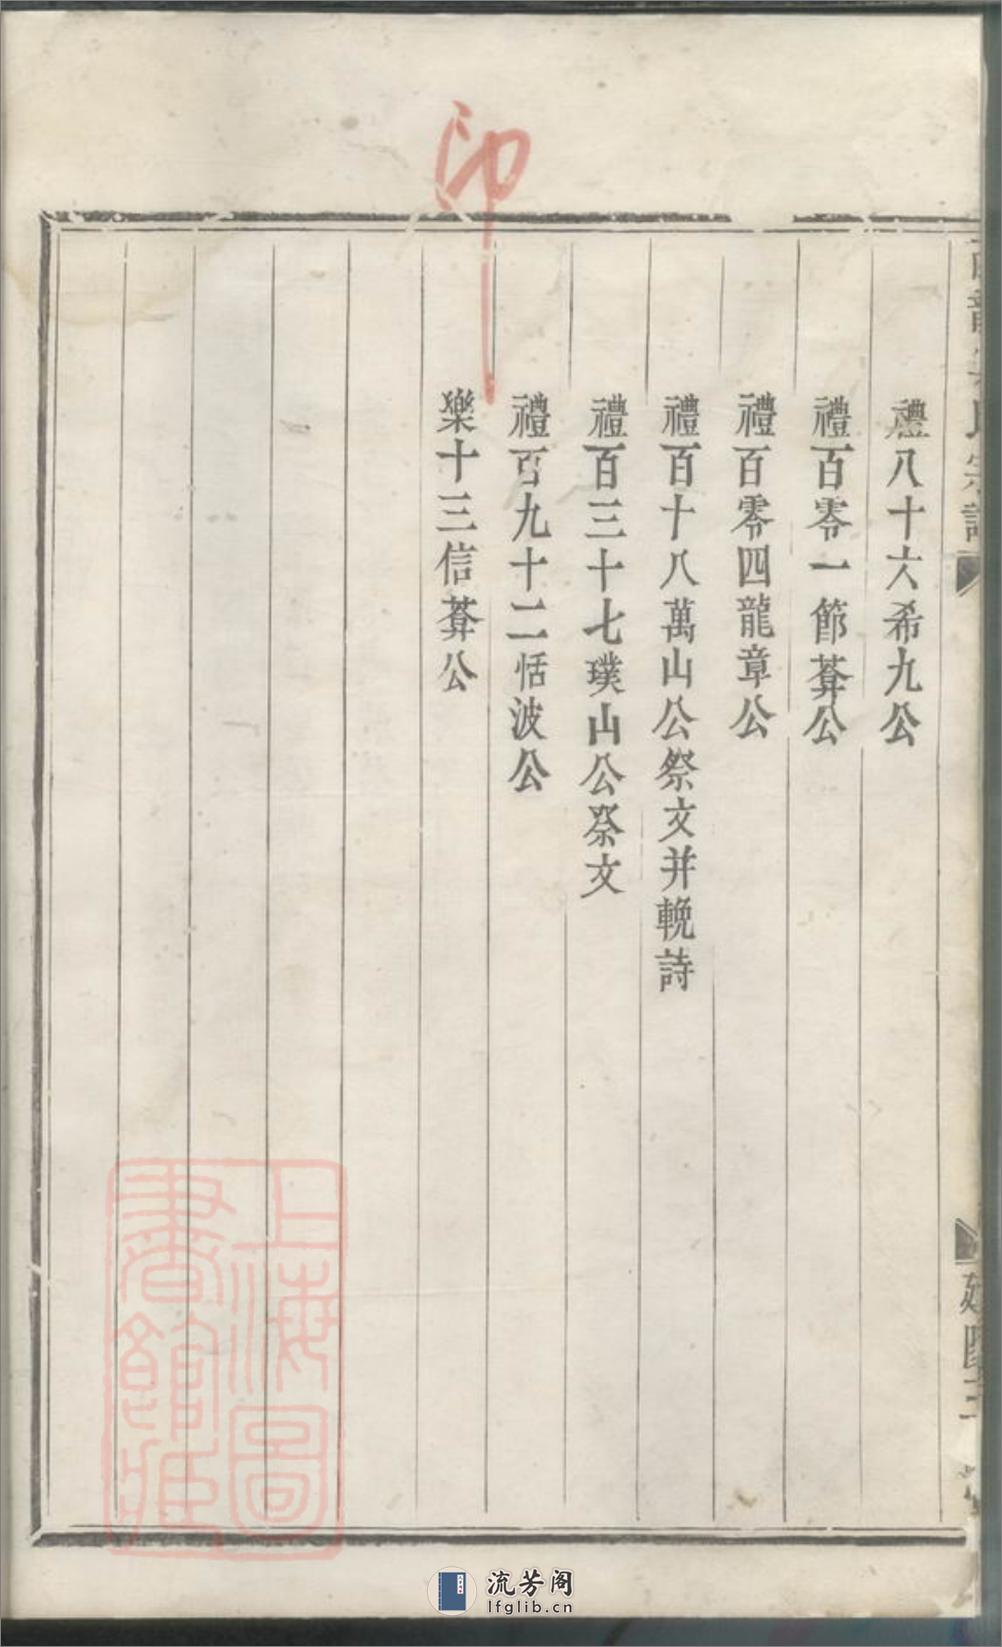 印
禮八十六希九公
禮百零一節葊公
禮百零四龍章公
禮百十八萬山公祭文并輓詩
禮百三十七璞山公祭文
禮百九十二恬波公
樂十三信葊公
上海圖
書館藏
流芳阁
lfglib.cn